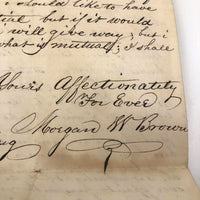 i should like to have
but if it would
will give way; but i
what is mutual; I shall
Yours Affectionatily
For Ever
Morgan W Brown